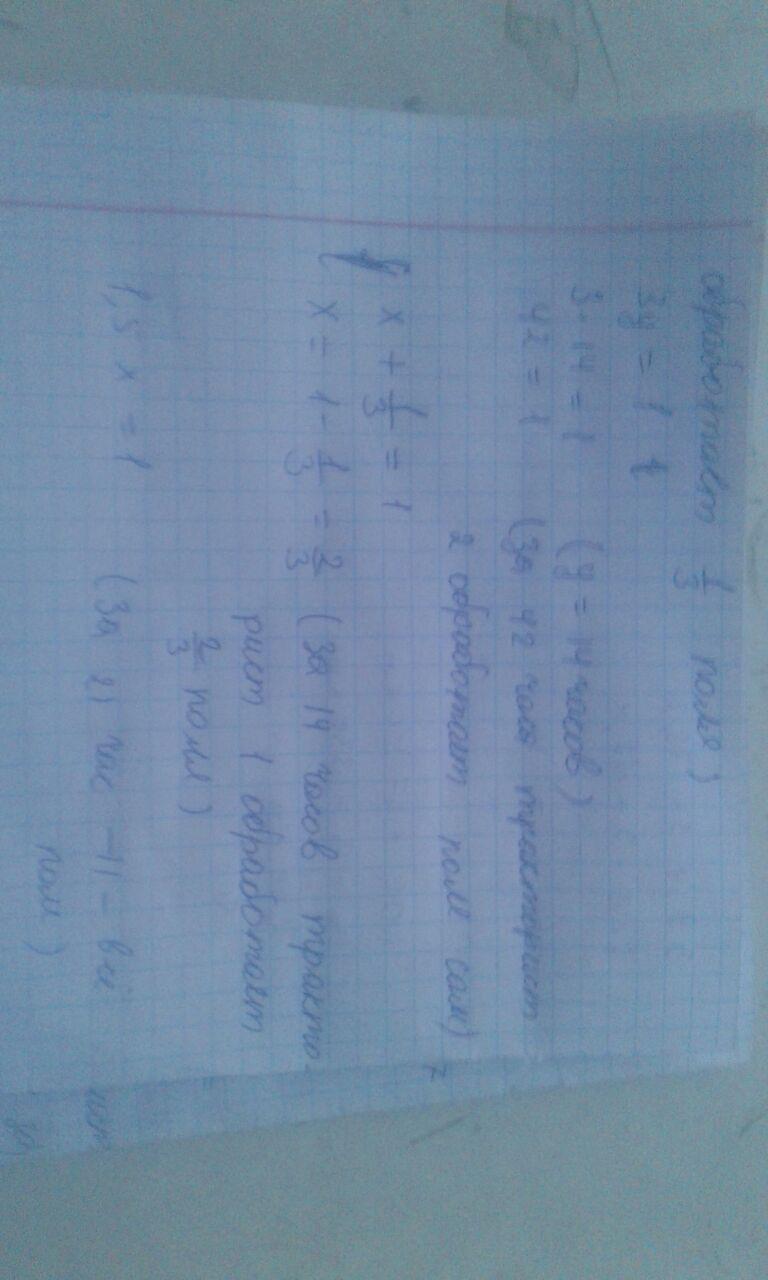 обработает 1/3 поля)
3y = 1
3 · 14 = 1 (y = 14 часов)
42 = 1 (За 42 часа тракторист
2 обработает поле сам)
x + 1/3 = 1
x = 1 - 1/3 = 2/3 (За 14 часов тракто-
рист 1 обработает
2/3 поля)
1,5 x = 1 (За 21 час -11- всё
поле)